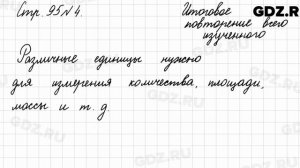 Стр. 95 № 4.
Итоговое
повторение всего
изученного
GDZ.R
Различные единицы нужно
для измерения количества, площади,
массы и т. д.